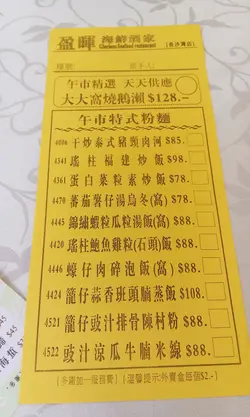 盈暉 海鮮酒家
(長沙灣店)
午市精選 天天供應
大大窩燒鵝瀨$128.-
午市特式粉麵
4006 干炒泰式豬頸肉河$85.
4341 瑤柱福建炒飯$98.
4361 蛋白菜粒素炒飯$78.
4470 蕃茄薯仔湯烏冬(窩)$78.
4445 錦繡蝦粒瓜粒湯飯(窩)$88.
4420 瑤柱鮑魚雞粒(石頭)飯$88.
4446 蠔仔肉碎泡飯(窩)$88.
4424 籠仔蒜香班頭腩蒸飯$108.
4521 籠仔豉汁排骨陳村粉$88.
4522 豉汁涼瓜牛𦟌米線$88.
溫馨提示:外賣盒每個$2.-
$45